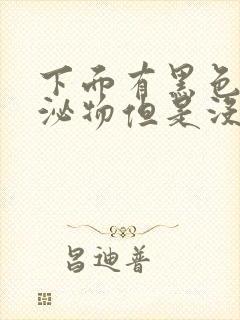 下面有黑色
泌物但是没
昌迪普